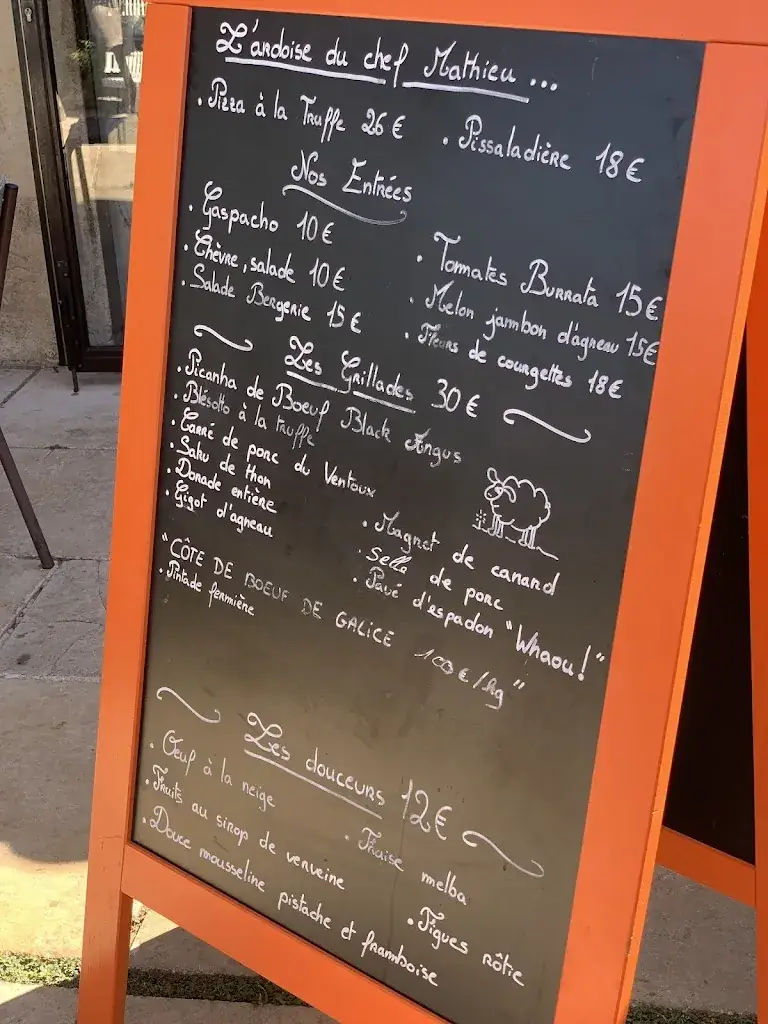 L'ardoise du chef Mathieu ...
. Pizza à la Truffe 26 € . Pissaladière 18 €
Nos Entrées
. Gaspacho 10 €
. Chèvre, salade 10 €
. Salade Bergerie 15 €
. Tomates Burrata 15 €
. Melon jambon d'agneau 15 €
. Fleurs de courgettes 18 €
Les Grillades 30 €
. Picanha de Boeuf Black Angus
. Blésotto à la truffe
. Carré de porc du Ventoux
. Saku de thon
. Dorade entière
. Gigot d'agneau
. Magret de canard
. Selle de porc
. Pavé d'espadon "Whaou!"
"CÔTE DE BOEUF DE GALICE 100 € / kg"
. Pintade fermière
Les douceurs 12 €
. Oeuf à la neige
. Fruits au sirop de verveine
. Douce mousseline pistache et framboise
. Fraise melba
. Figues rôtie